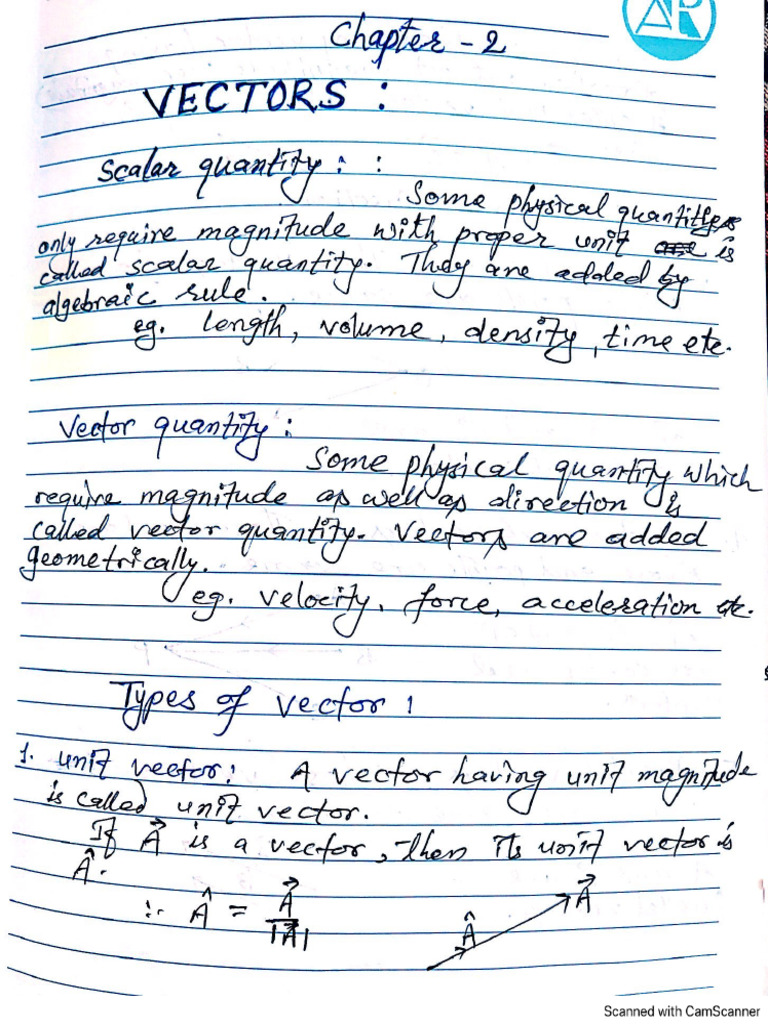 AR
Chapter - 2
VECTORS :
Scalar quantity : :
Some physical quantities
only require magnitude with proper unit is
called scalar quantity. They are added by
algebraic rule.
eg. length, volume, density, time etc.
Vector quantity :
Some physical quantity which
require magnitude as well as direction is
called vector quantity. Vectors are added
geometrically.
eg. velocity, force, acceleration etc.
Types of vector :
1. unit vector : A vector having unit magnitude
is called unit vector.
If A⃗ is a vector, then its unit vector is
Â.
∴ Â = A⃗ / |A⃗|
 A⃗
Scanned with CamScanner